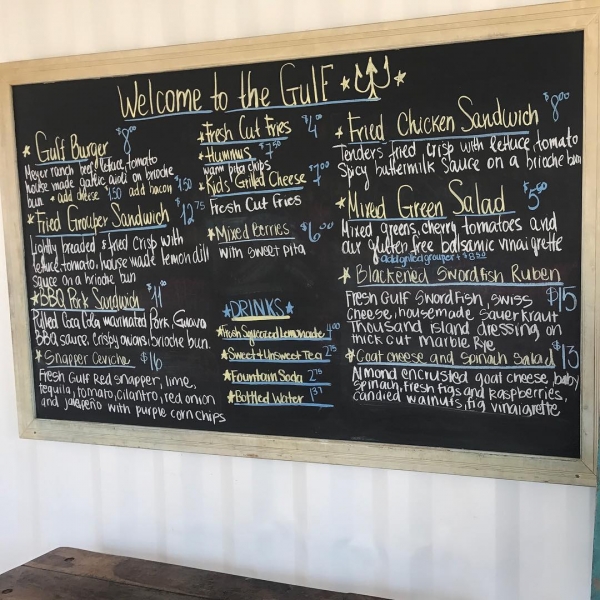 Welcome to the Gulf
Gulf Burger $8.00
Meyer ranch beef, lettuce, tomato
house made garlic aioli on brioche
bun * add cheese 1.50 add bacon $1.50
Fried Grouper Sandwich $12.75
Lightly breaded & fried crisp with
lettuce, tomato, house made lemon dill
sauce on a brioche bun
BBQ Pork Sandwich $11.00
Pulled Coca Cola marinated Pork, Guava
BBQ sauce, crispy onions, brioche bun.
Snapper Ceviche $16
Fresh Gulf Red snapper, lime,
tequila, tomato, cilantro, red onion
and jalapeño with purple corn chips
Fresh Cut Fries $4.00
Hummus $7.50
warm pita chips
Kid's Grilled Cheese $7.00
Fresh Cut Fries
Mixed Berries $6.00
with sweet pita
DRINKS
Fresh Squeezed Lemonade 4.00
Sweet & Unsweet Tea 2.75
Fountain Soda 2.75
Bottled Water 1.37
Fried Chicken Sandwich $8.00
Tenders fried, crisp with lettuce, tomato
Spicy buttermilk Sauce on a brioche bun
Mixed Green Salad $5.00
Mixed greens, cherry tomatoes and
our gluten free balsamic vinaigrette
add grilled grouper + $8.50
Blackened Swordfish Ruben
Fresh Gulf Swordfish, swiss $15
Cheese, housemade Sauerkraut
Thousand Island dressing on
thick cut marble Rye
Goat cheese and spinach salad $13
Almond encrusted goat cheese, baby
Spinach, fresh figs and raspberries,
candied walnuts, fig vinaigrette